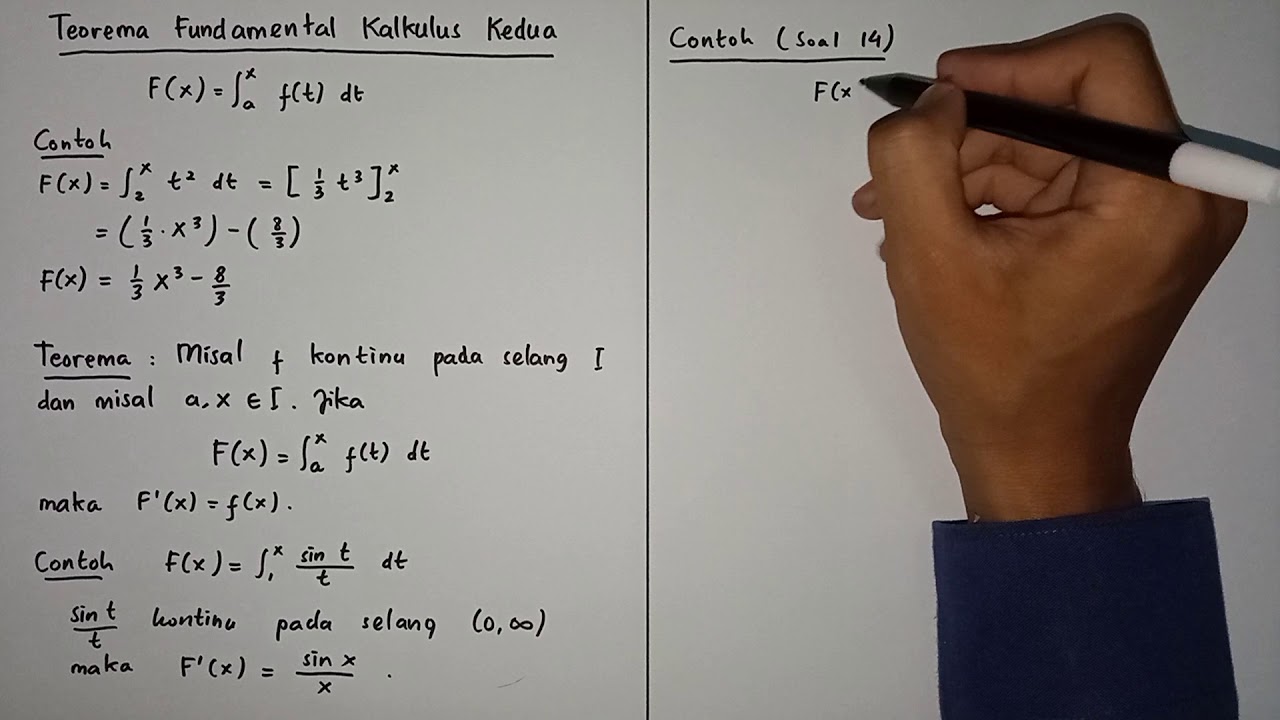 Teorema Fundamental Kalkulus Kedua
F(x) = ∫ₐˣ f(t) dt
Contoh
F(x) = ∫₂ˣ t² dt = [ 1/3 t³ ]₂ˣ
= (1/3 · x³) - (8/3)
F(x) = 1/3 x³ - 8/3
Teorema : Misal f kontinu pada selang I
dan misal a, x ∈ I. Jika
F(x) = ∫ₐˣ f(t) dt
maka F'(x) = f(x).
Contoh F(x) = ∫₁ˣ sin t/t dt
sin t/t kontinu pada selang (0, ∞)
maka F'(x) = sin x/x .
Contoh (Soal 14)
F(x